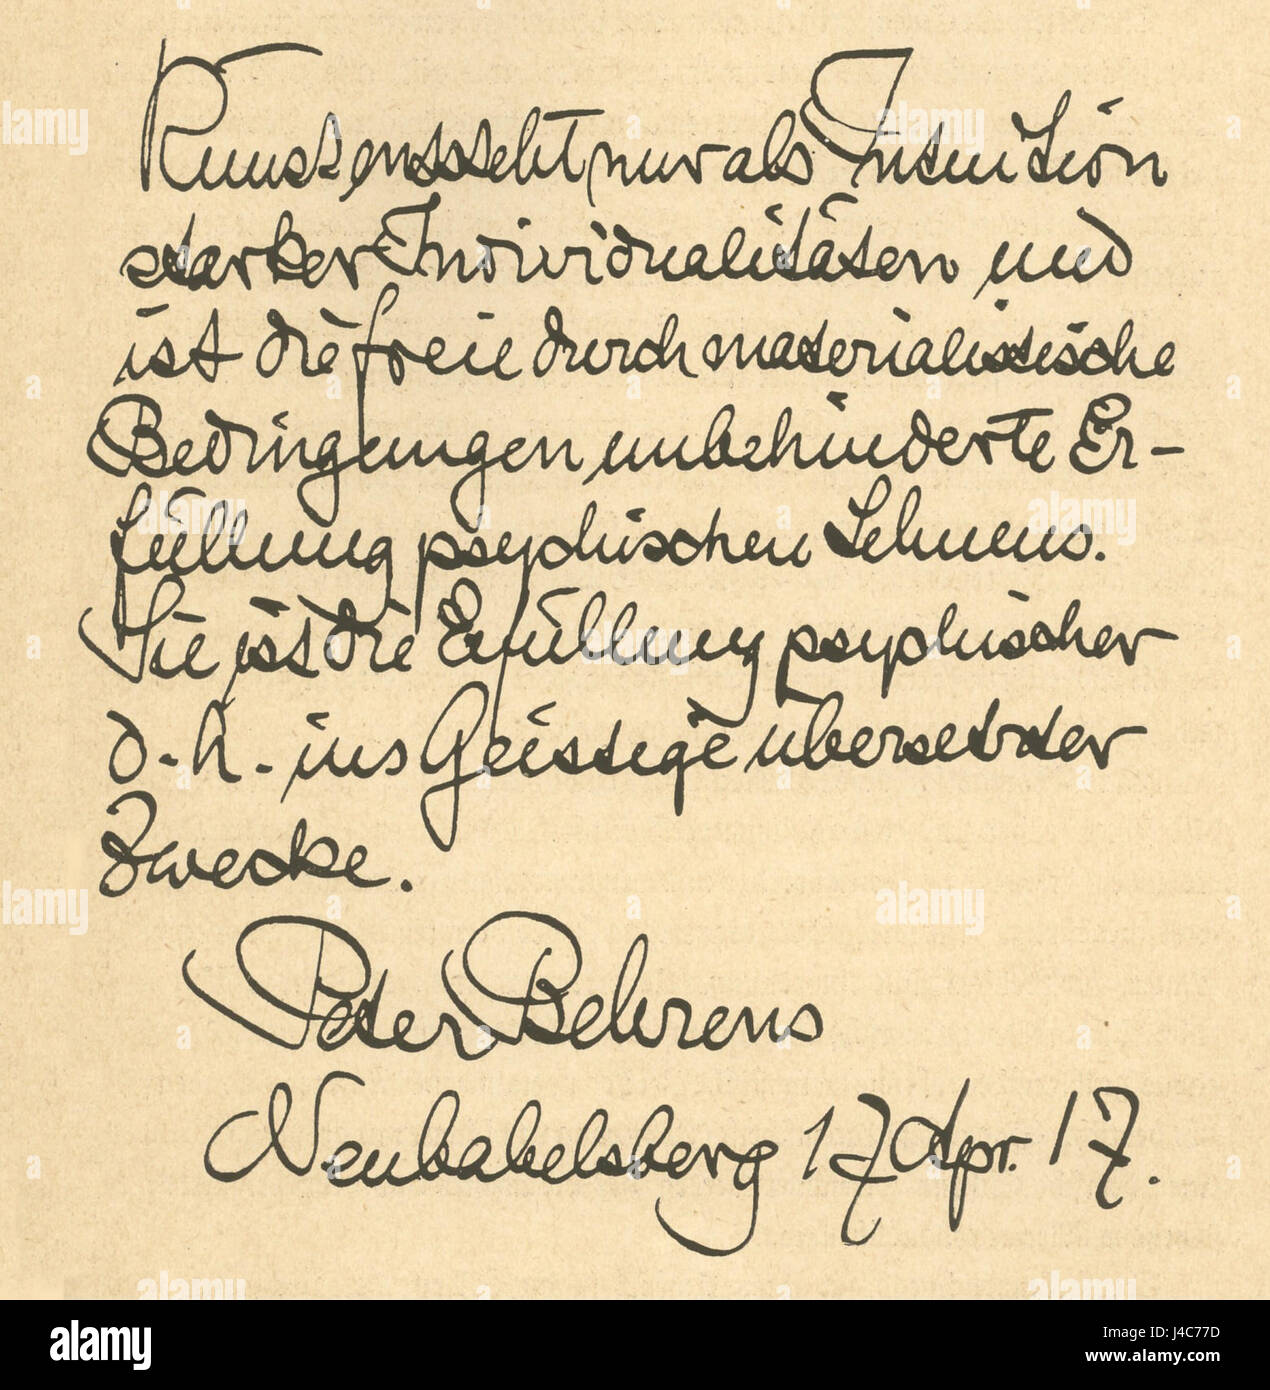 Kunst entsteht nur als Intuition
starker Individualitäten und
ist die freie durch materialistische
Bedingungen unbehinderte Er-
füllung psychischen Sehnens.
Sie ist die Erfüllung psychischer
d. h. ins Geistige übersetzter
Zwecke.
Peter Behrens
Neubabelsberg 17 Apr. 17.
alamy
Image ID: J4C77D
www.alamy.com